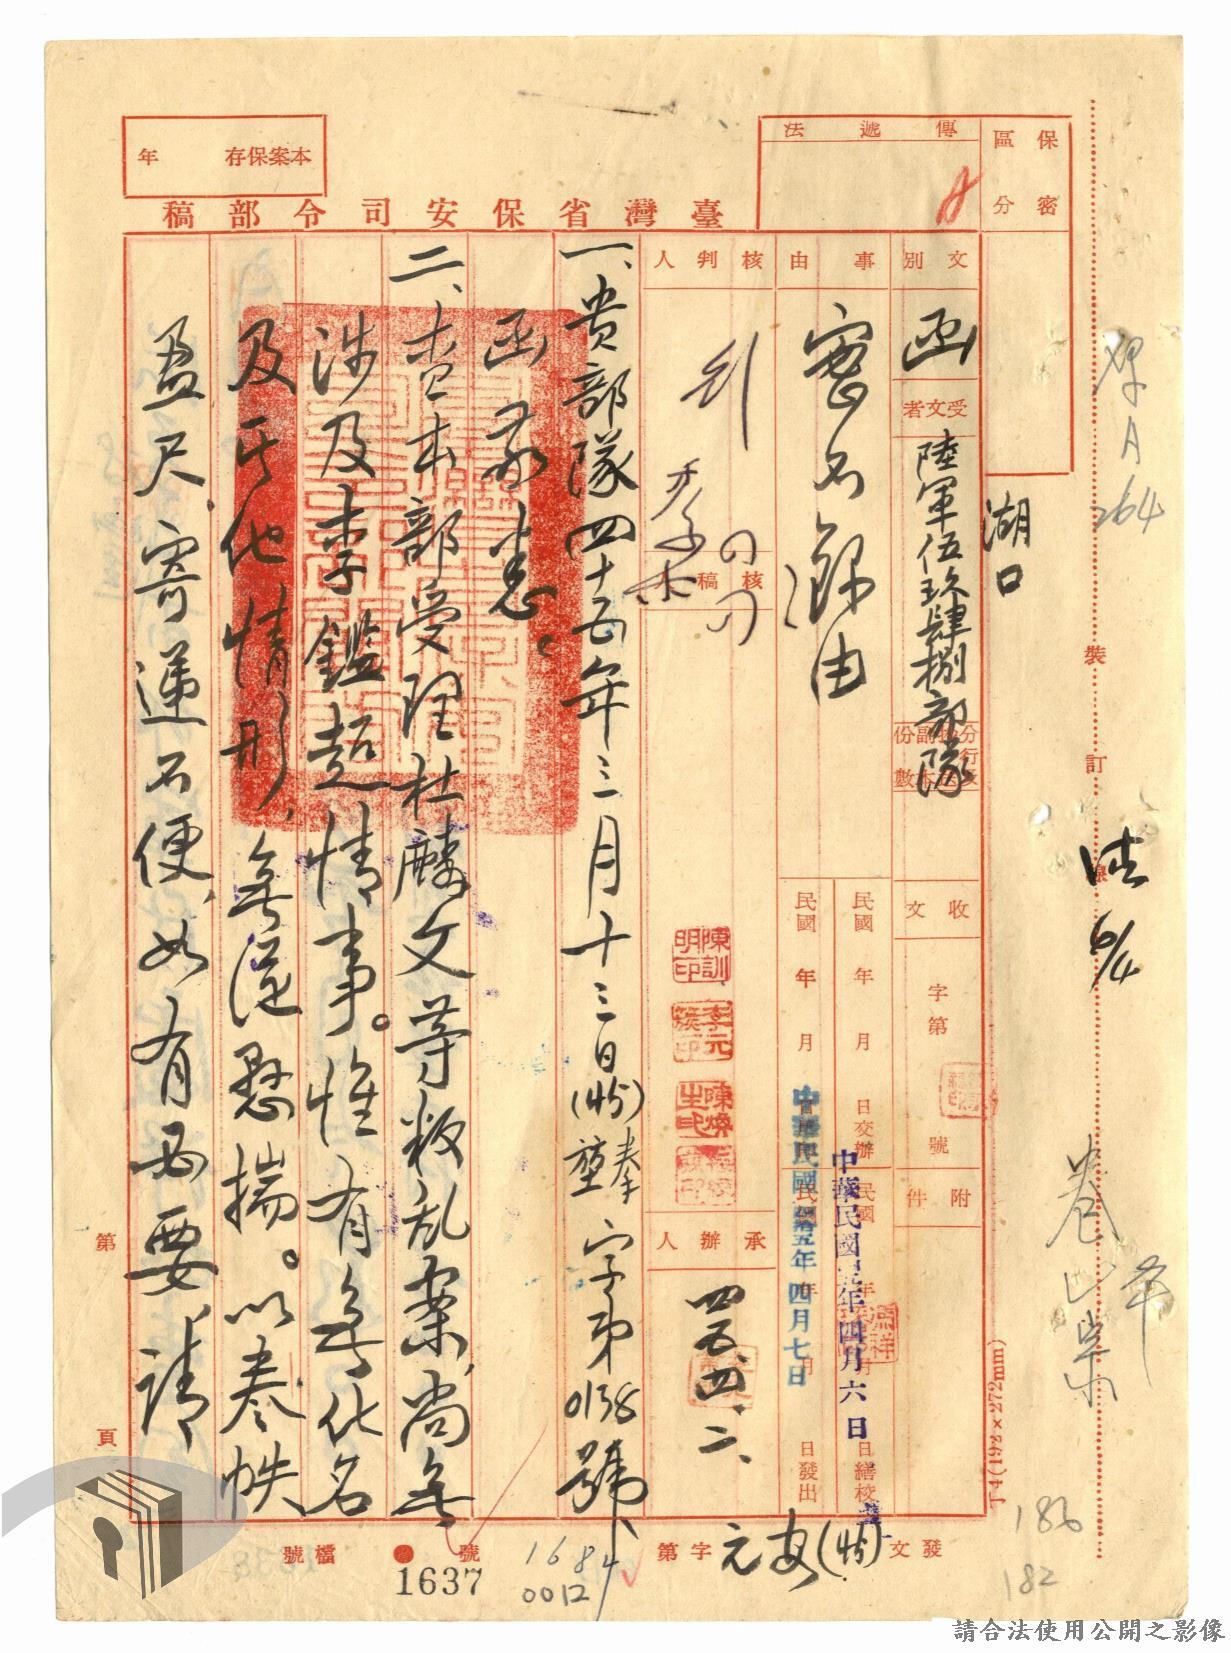 保密區分
傳遞法
本案保存 年
臺灣省保安司令部稿
文別 函
受文者 陸軍伍玖肆捌部隊
湖口
事由 密不錄由
核判人
核稿人
收文 字第 號
附件
民國 年 月 日交辦
中華民國四五年四月六日
日繕校
中華民國四五年四月七日
日發出
陳訓明印
承辦人
四五、四、二、
一、貴部隊四十五年三月十三日(45)堃拳字第0138號
函敬悉。
二、查本部受理杜麟文等叛亂案,尚無
涉及李鑑超情事。惟有無化名
及其他情形,無從懸揣。以卷帙
盈尺,寄遞不便,如有必要,請
第 頁
裝 訂 線
A 264
T-4(192×272mm)
發文 (45)安元 字第 1684 號
0012
檔號
1637
186
182
請合法使用公開之影像